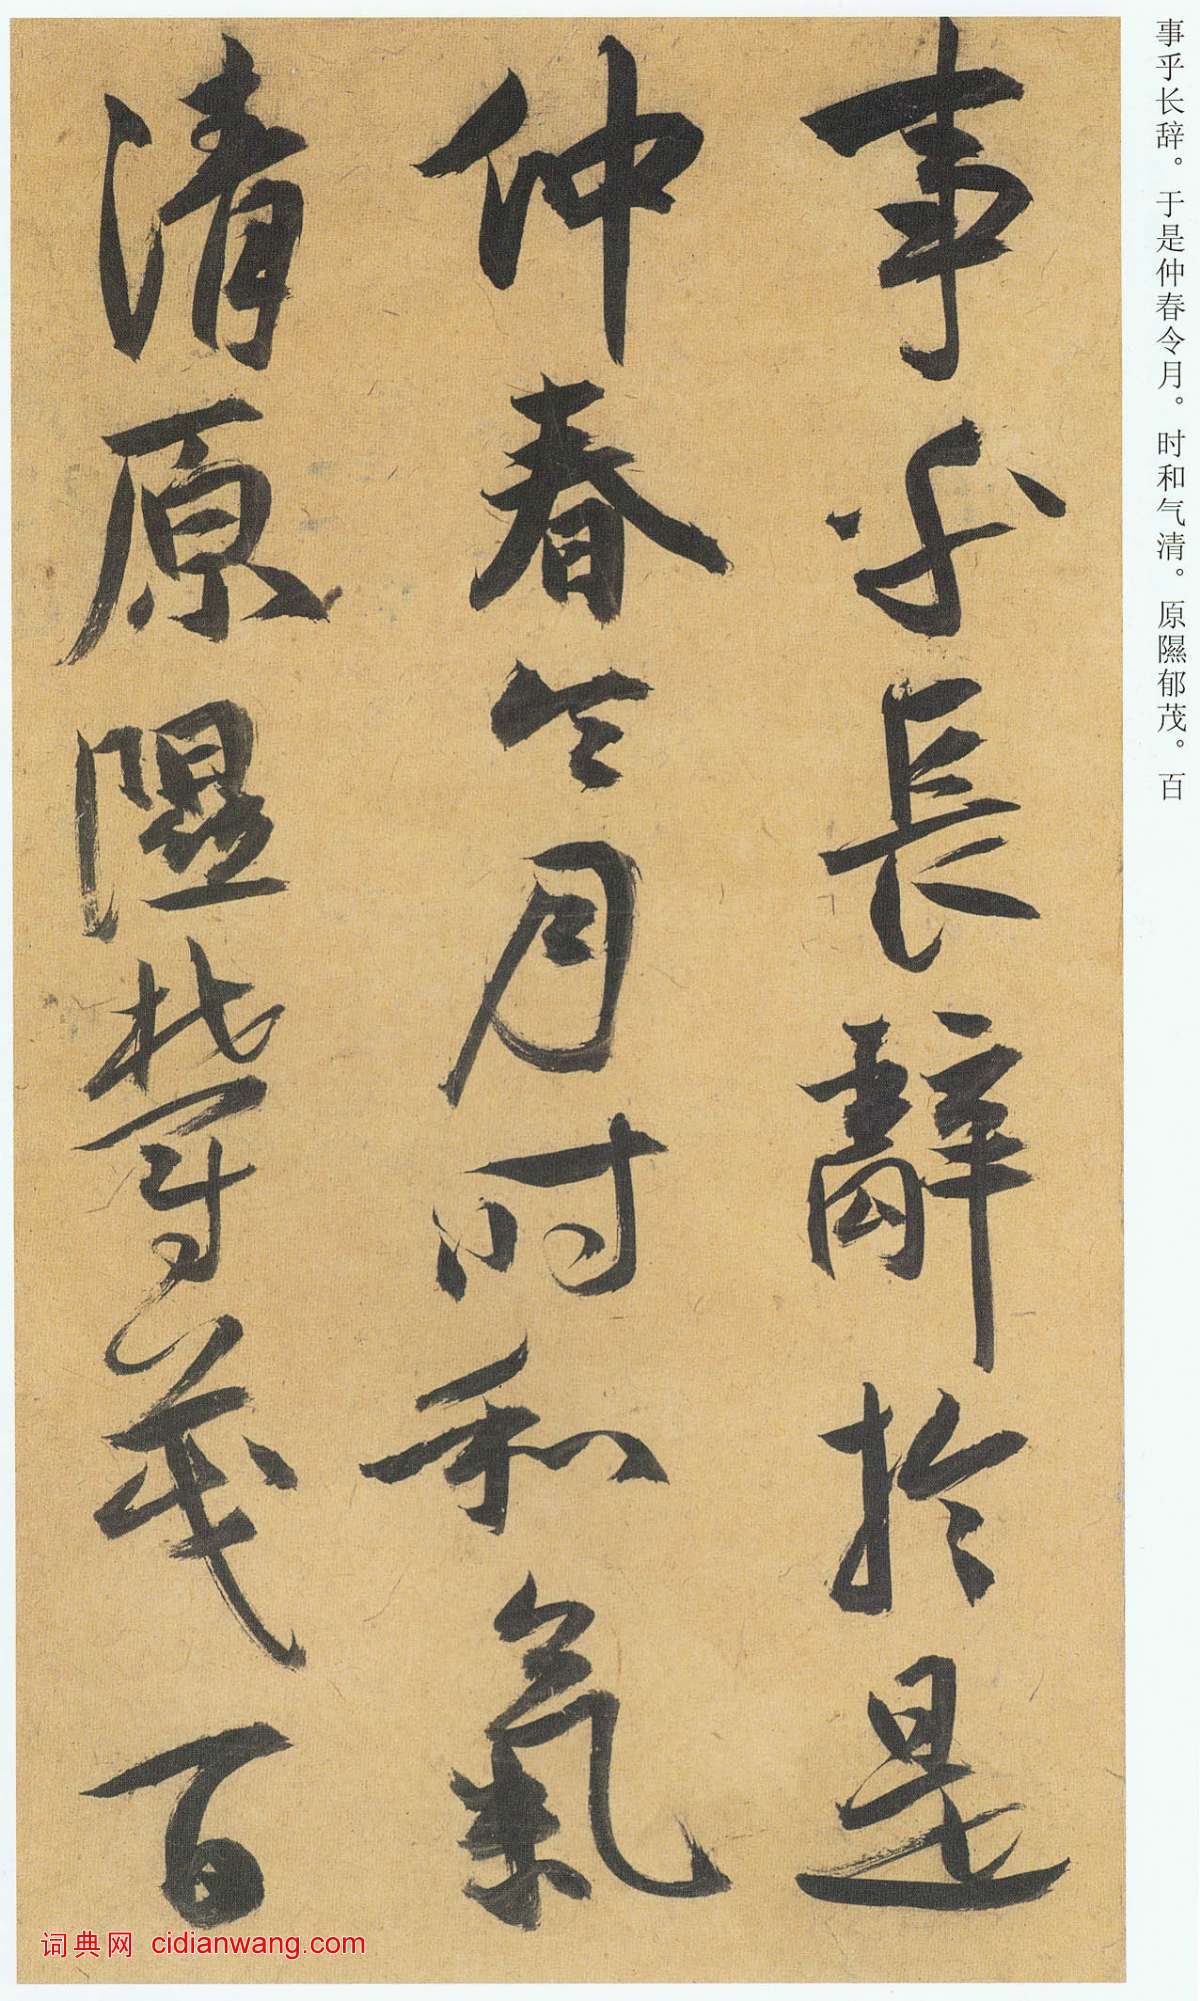 事乎长辞。于是仲春令月。时和气清。原隰郁茂。百
事乎長辭於是
仲春令月时和氣
清原隰欝茂百
词典网 cidianwang.com